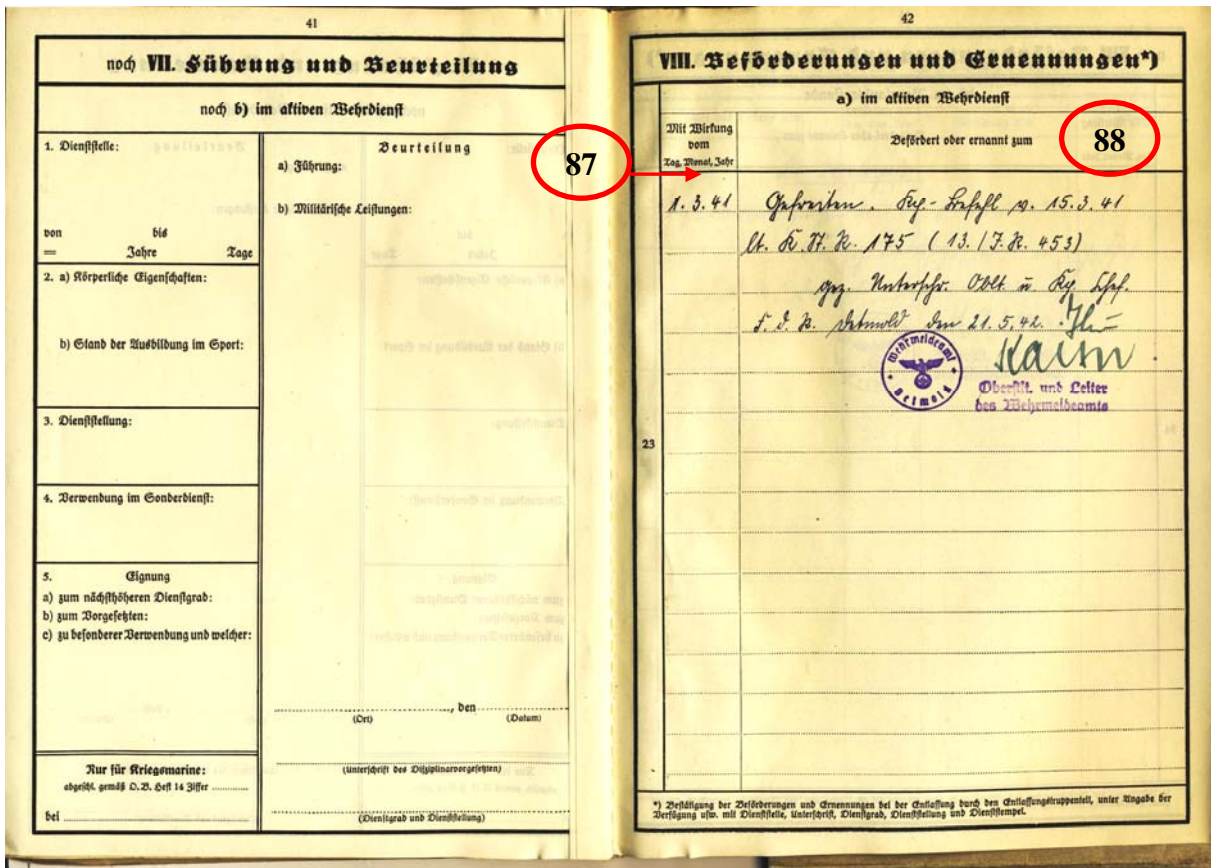 41
noch VII. Führung und Beurteilung
noch b) im aktiven Wehrdienst
1. Dienststelle:
von bis
= Jahre Tage
2. a) Körperliche Eigenschaften:
b) Stand der Ausbildung im Sport:
3. Dienststellung:
4. Verwendung im Sonderdienst:
5. Eignung
a) zum nächsthöheren Dienstgrad:
b) zum Vorgesetzten:
c) zu besonderer Verwendung und welcher:
Nur für Kriegsmarine:
abgeschl. gemäß D.B. Heft 14 Ziffer
bei
Beurteilung
a) Führung:
b) Militärische Leistungen:
, den
(Ort) (Datum)
(Unterschrift des Disziplinarvorgesetzten)
(Dienstgrad und Dienststellung)
87
42
VIII. Beförderungen und Ernennungen*)
a) im aktiven Wehrdienst
Mit Wirkung
vom
Tag, Monat, Jahr
Befördert oder ernannt zum
88
1.3.41 Gefreiten. Kp.-Befehl v. 15.3.41
lt. K.St.N. 175 (13./J.R. 453)
gez. Unterschr. Oblt u. Kp. Chef.
F.d.R. Detmold den 21.5.42.
Wehrmeldeamt
Detmold
Oberstlt. und Leiter
des Wehrmeldeamts
23
*) Bestätigung der Beförderungen und Ernennungen bei der Entlassung durch den Entlassungstruppenteil, unter Angabe der
Verfügung usw. mit Dienststelle, Unterschrift, Dienstgrad, Dienststellung und Dienststempel.